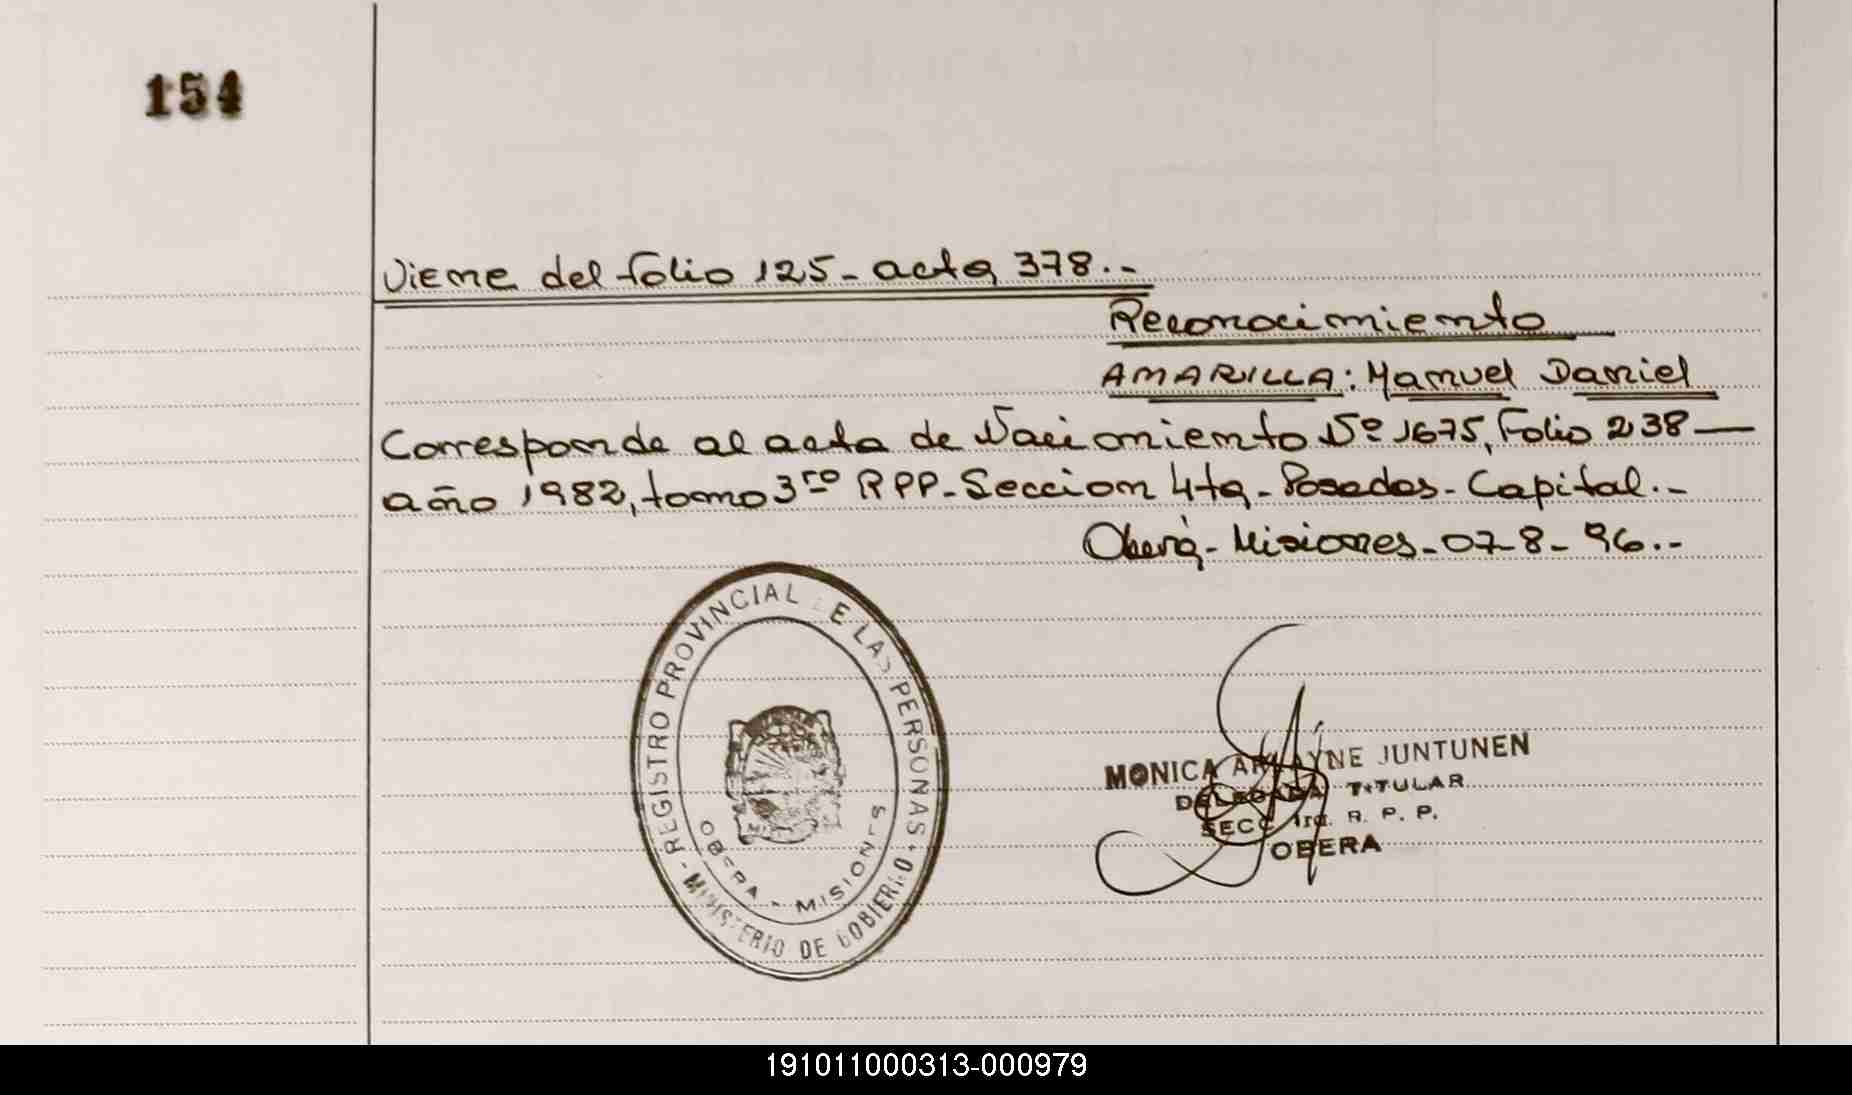 154
Viene del folio 125- acta 378.-
Reconocimiento
AMARILLA: Manuel Daniel
Corresponde al acta de Nacimiento Nº 1675, Folio 238—
año 1982, tomo 3ro RPP- Seccion 4ta- Posadas- Capital.-
Oberá- Misiones- 07-8-96.-
REGISTRO PROVINCIAL DE LAS PERSONAS
MINISTERIO DE GOBIERNO
OBERA - MISIONES
MONICA JUNTUNEN
DELEGADA TITULAR
SECC 1ra. R. P. P.
OBERA
191011000313-000979